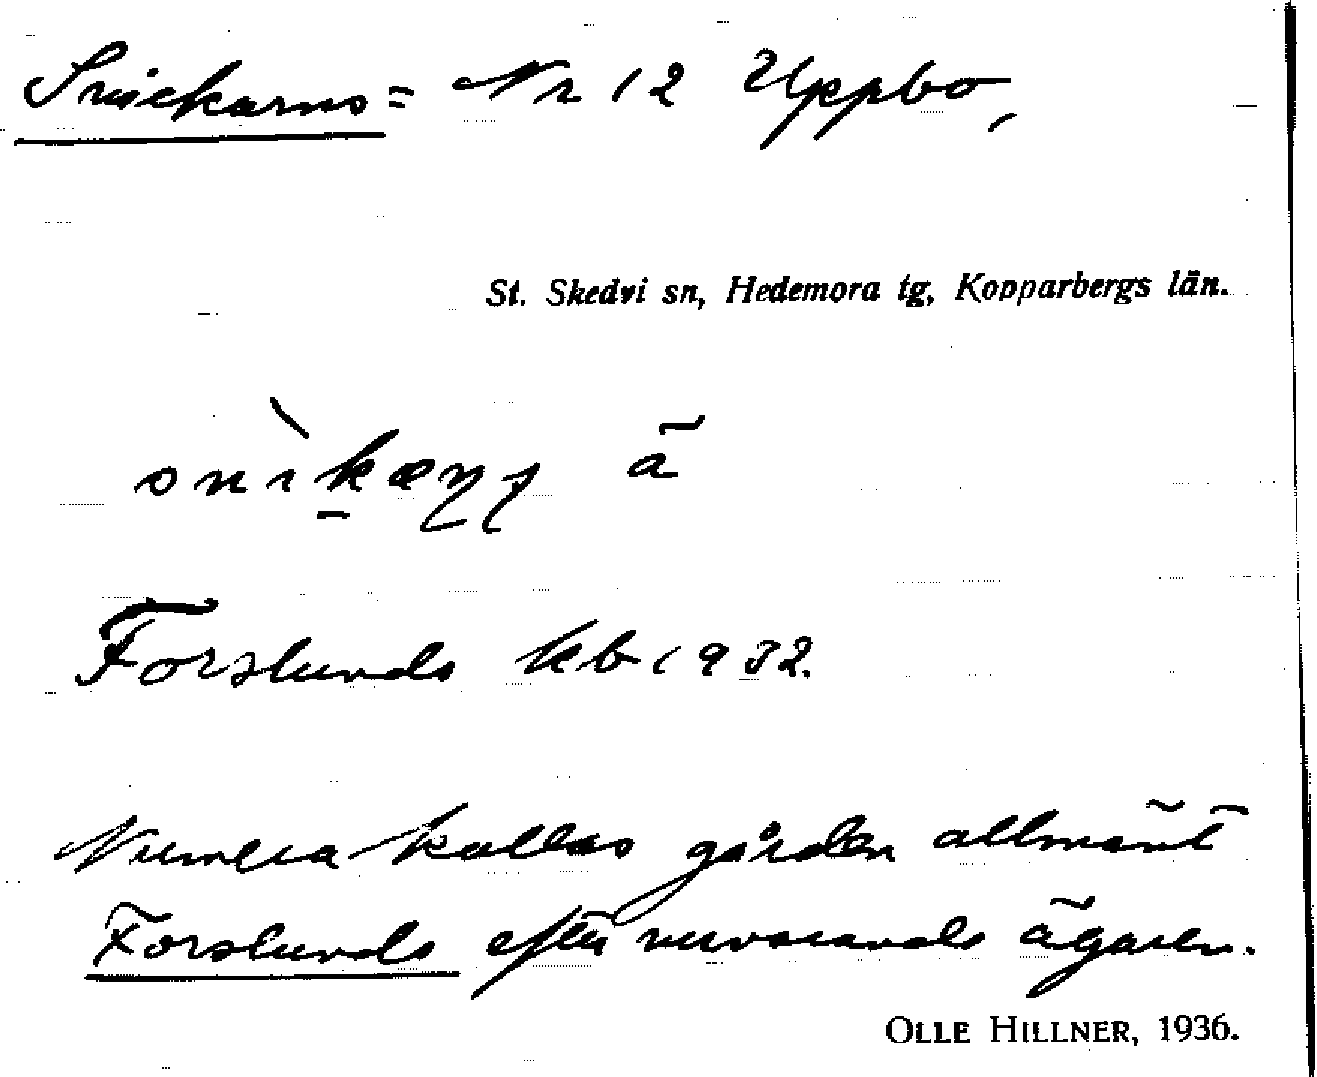 Snickarns = Nr 12 Uppbo,
St. Skedvi sn, Hedemora tg, Kopparbergs län.
ä
Forslunds kb 1932.
Numera kallas gården allmänt
Forslunds efter nuvarande ägaren.
OLLE HILLNER, 1936.